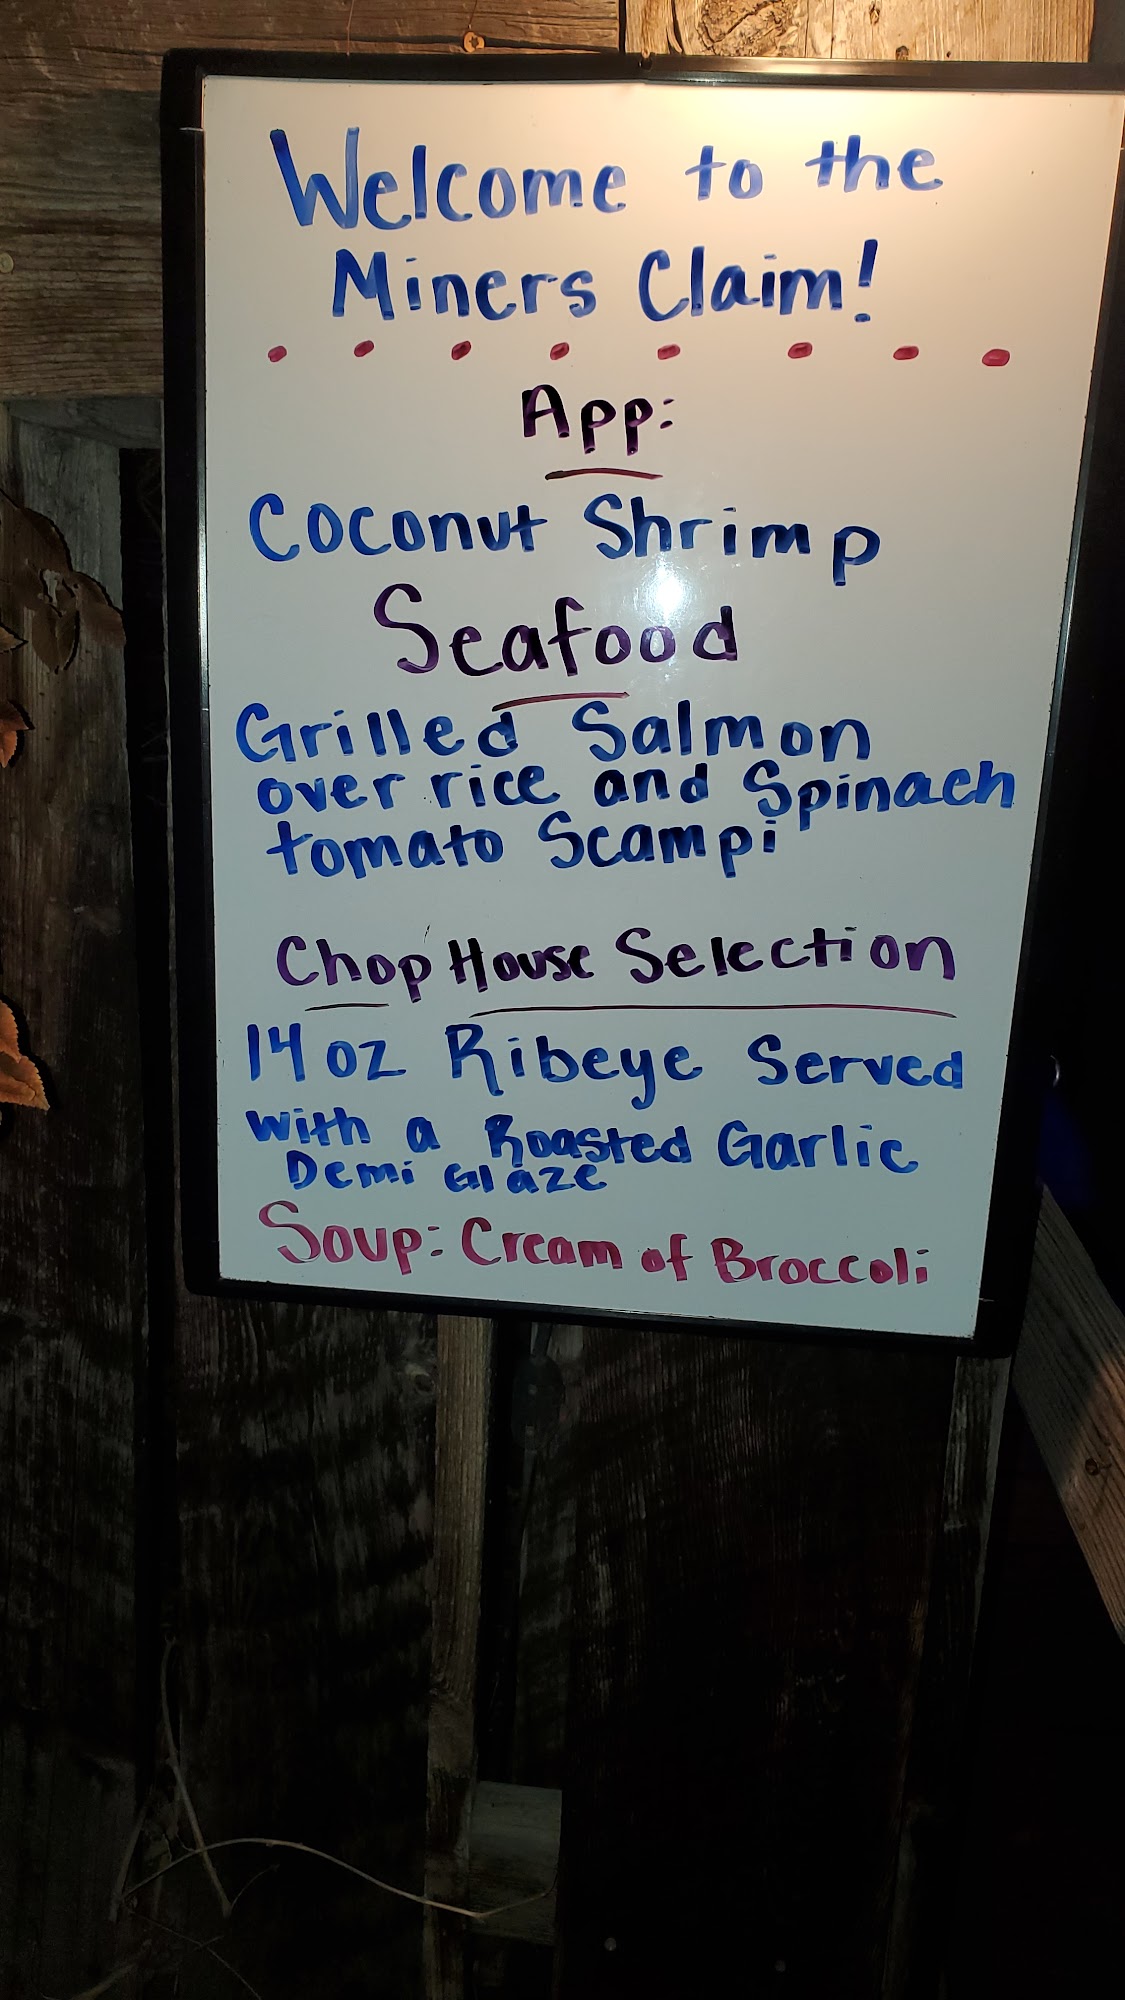 Welcome to the
Miners Claim!
App:
Coconut Shrimp
Seafood
Grilled Salmon
over rice and Spinach
tomato Scampi
Chop House Selection
14 oz Ribeye Served
with a Roasted Garlic
Demi Glaze
Soup: Cream of Broccoli